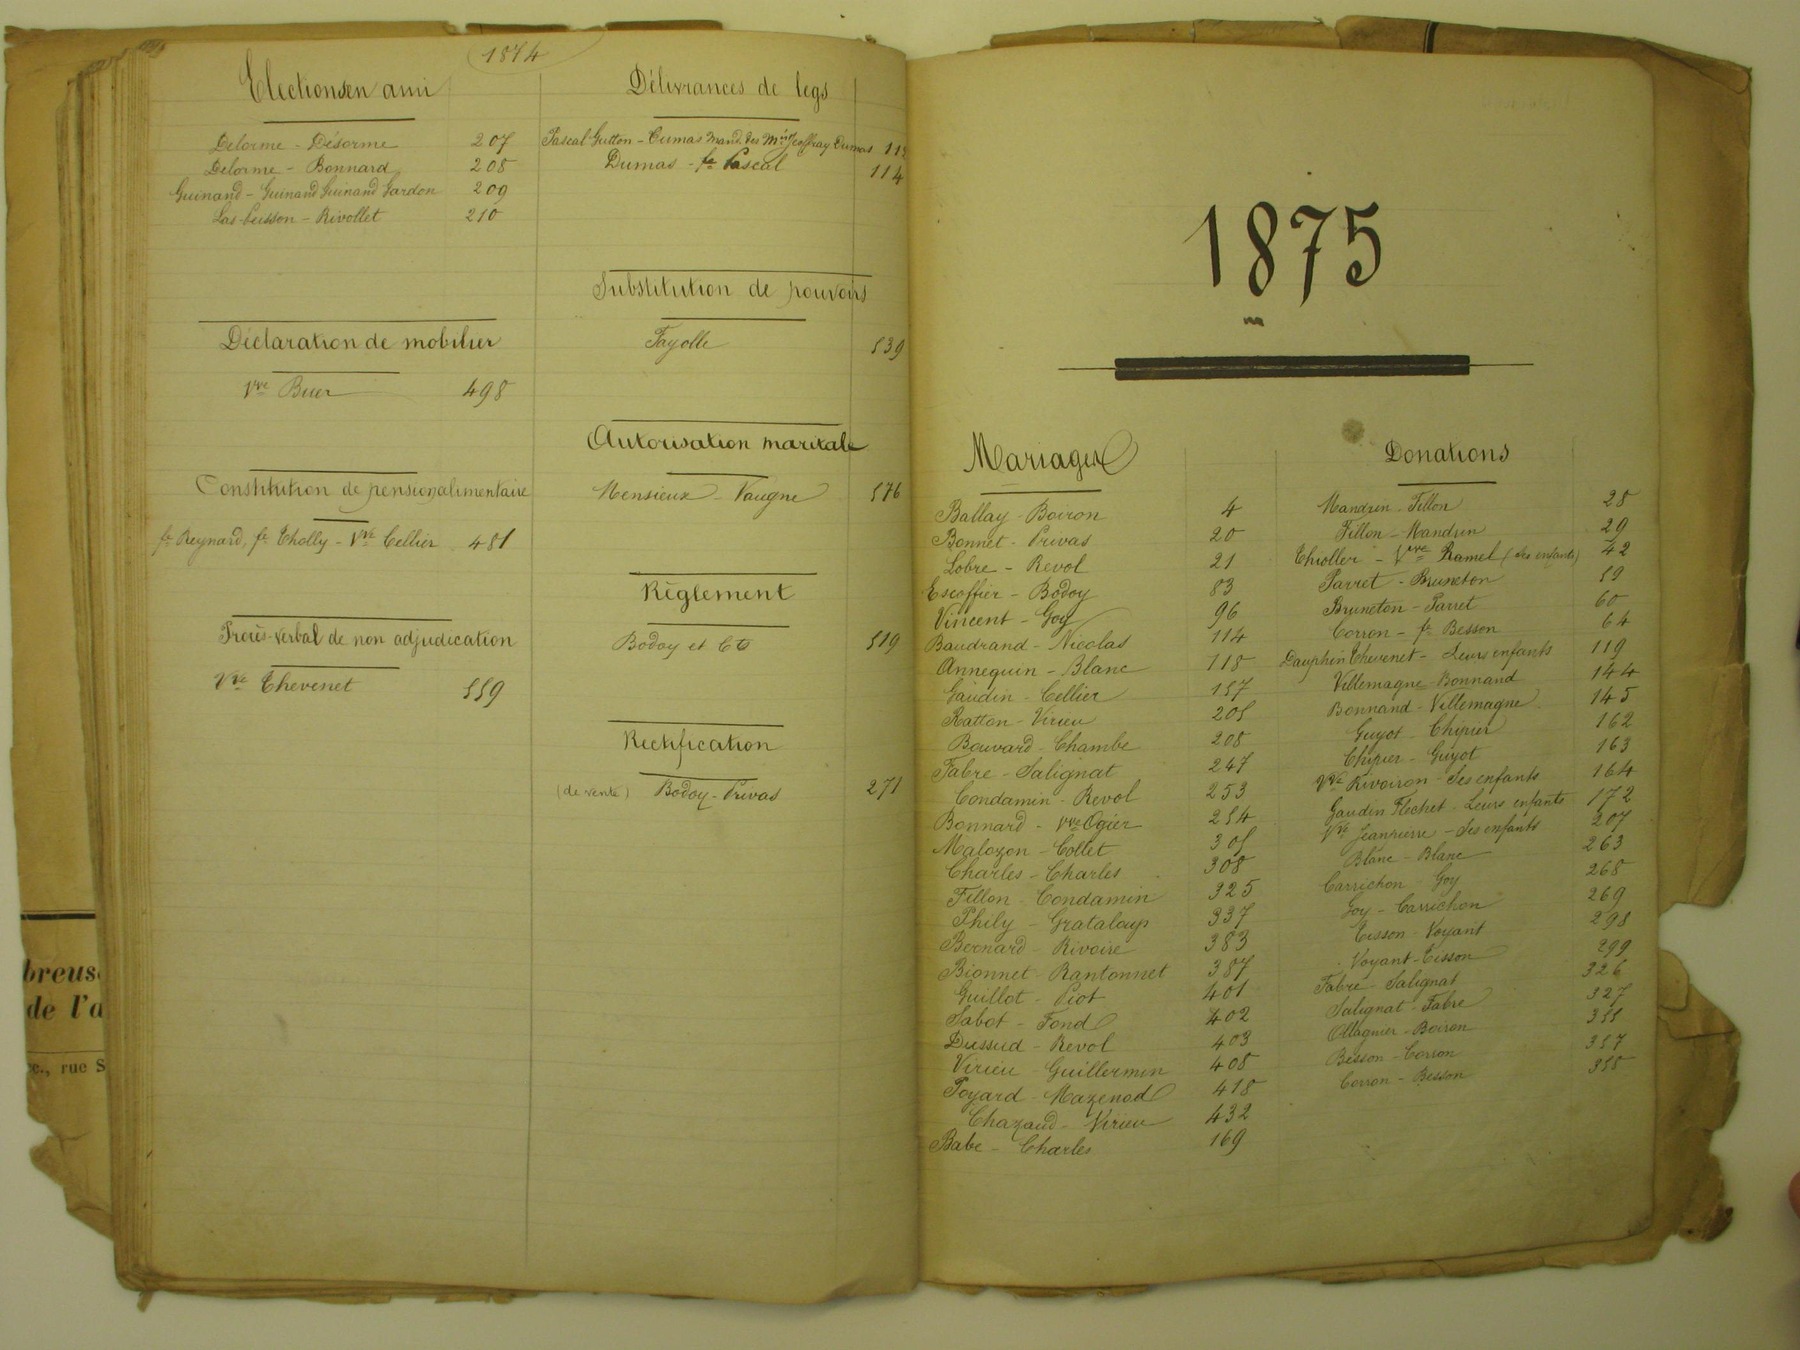 1874
Elections en ami
Delorme - Désorme 207
Delorme - Bonnard 208
Guinand - Guinand Guinand Gardon 209
Rivollet 210
Déclaration de mobilier
Vve Buer 498
Constitution de pension alimentaire
fe Reynard, fe Tholly - Vve Cellier 481
Procès-verbal de non adjudication
Vve Thevenet 559
Délivrances de legs
Pascal Gutton - Dumas mand. des Mis Jeoffray Dumas
Dumas - fe Pascal 114
Substitution de pouvoirs
Fayolle 539
Autorisation maritale
Mensieux - Vaugne 576
Règlement
Bodoy et Cts 519
Rectification
(de vente) Bodoy - Privas 271
1875
Mariages
Ballay - Boiron 4
Bonnet - Privas 20
Lobre - Revol 21
Escoffier - Bodoy 83
Vincent - Goy 96
Baudrand - Nicolas 114
Annequin - Blanc 118
Gaudin - Cellier 157
Ratton - Virieu 205
Bouvard - Chambe 208
Fabre - Salignat 247
Condamin - Revol 253
Bonnard - Vve Ogier 254
Malozon - Collet 305
Charles - Charles 308
Fillon - Condamin 325
Phily - Grataloup 337
Bernard - Rivoire 383
Bionnet - Rantonnet 387
Guillot - Piot 401
Sabot - Fond 402
Dussud - Revol 403
Virieu - Guillermin 408
Poyard - Mazenod 418
Chazaud - Virieu 432
Babe - Charles 169
Donations
Mandrin - Fillon 28
Fillon - Mandrin 29
Thiollier - Vve Ramel (ses enfants) 42
Parret - Bruneton 59
Bruneton - Parret 60
Corron - fe Besson 64
Dauphin Thevenet - Leurs enfants 119
Villemagne - Bonnand 144
Bonnand - Villemagne 145
Guyot - Chipier 162
Chipier - Guyot 163
Vve Rivoiron - Ses enfants 164
Gaudin Flechet - Leurs enfants 172
Vve Jeanpierre - Ses enfants 207
Blanc - Blanc 263
Carrichon - Goy 268
Goy - Carrichon 269
Tisson - Voyant 298
Voyant - Tisson 299
Fabre - Salignat 326
Salignat - Fabre 327
Ollagnier - Boiron 355
Besson - Corron 357
Corron - Besson 358
breus
de l'a
rue S